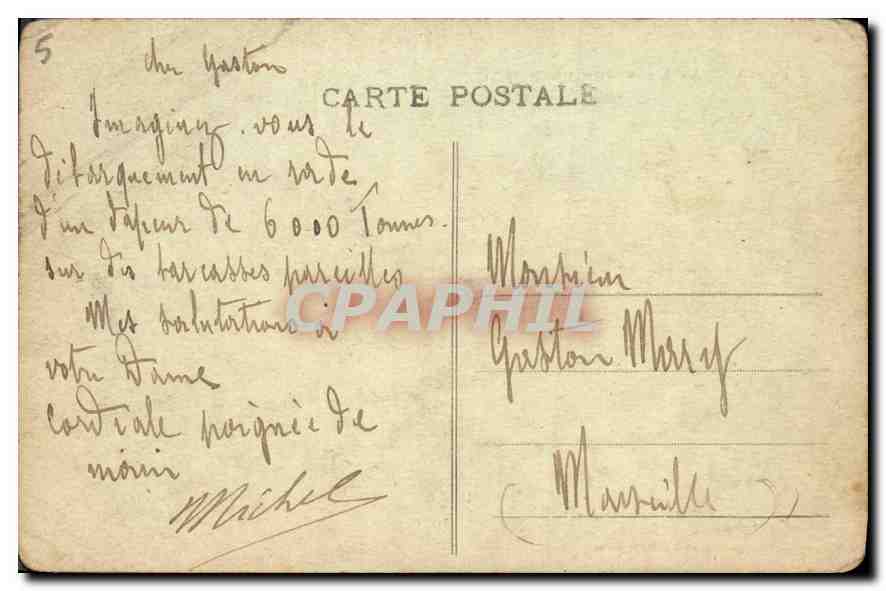 5
Cher Gaston
CARTE POSTALE
Imaginez-vous le
débarquement en rade
d'un vapeur de 6000 Tonnes.
sur des barcasses pareilles
Mes salutations à
votre Dame
Cordiale poignée de
main
Michel
CPAPHIL
Monsieur
Gaston Mary
(Marseille)